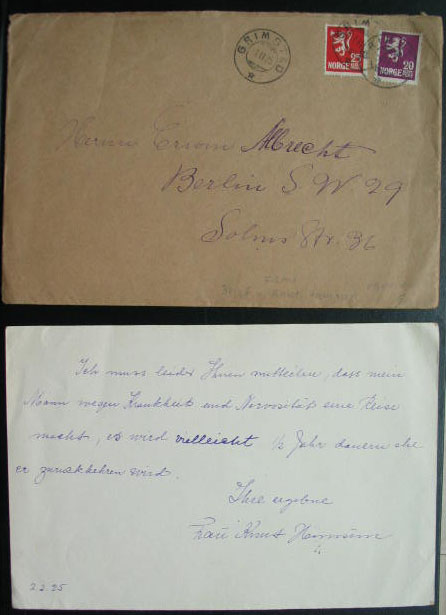 GRIMSTAD
25
NORGE
20
NORGE
Herrn Erwin Albrecht
Berlin S W 29
Solms Str. 36
Ich muss leider Ihnen mitteilen, dass mein
Mann wegen Krankheit und Nervosität eine Reise
macht, es wird vielleicht ½ Jahr dauern ehe
er zurückkehren wird.
Ihre ergebene
Frau Knut Hamsun
2.2.35